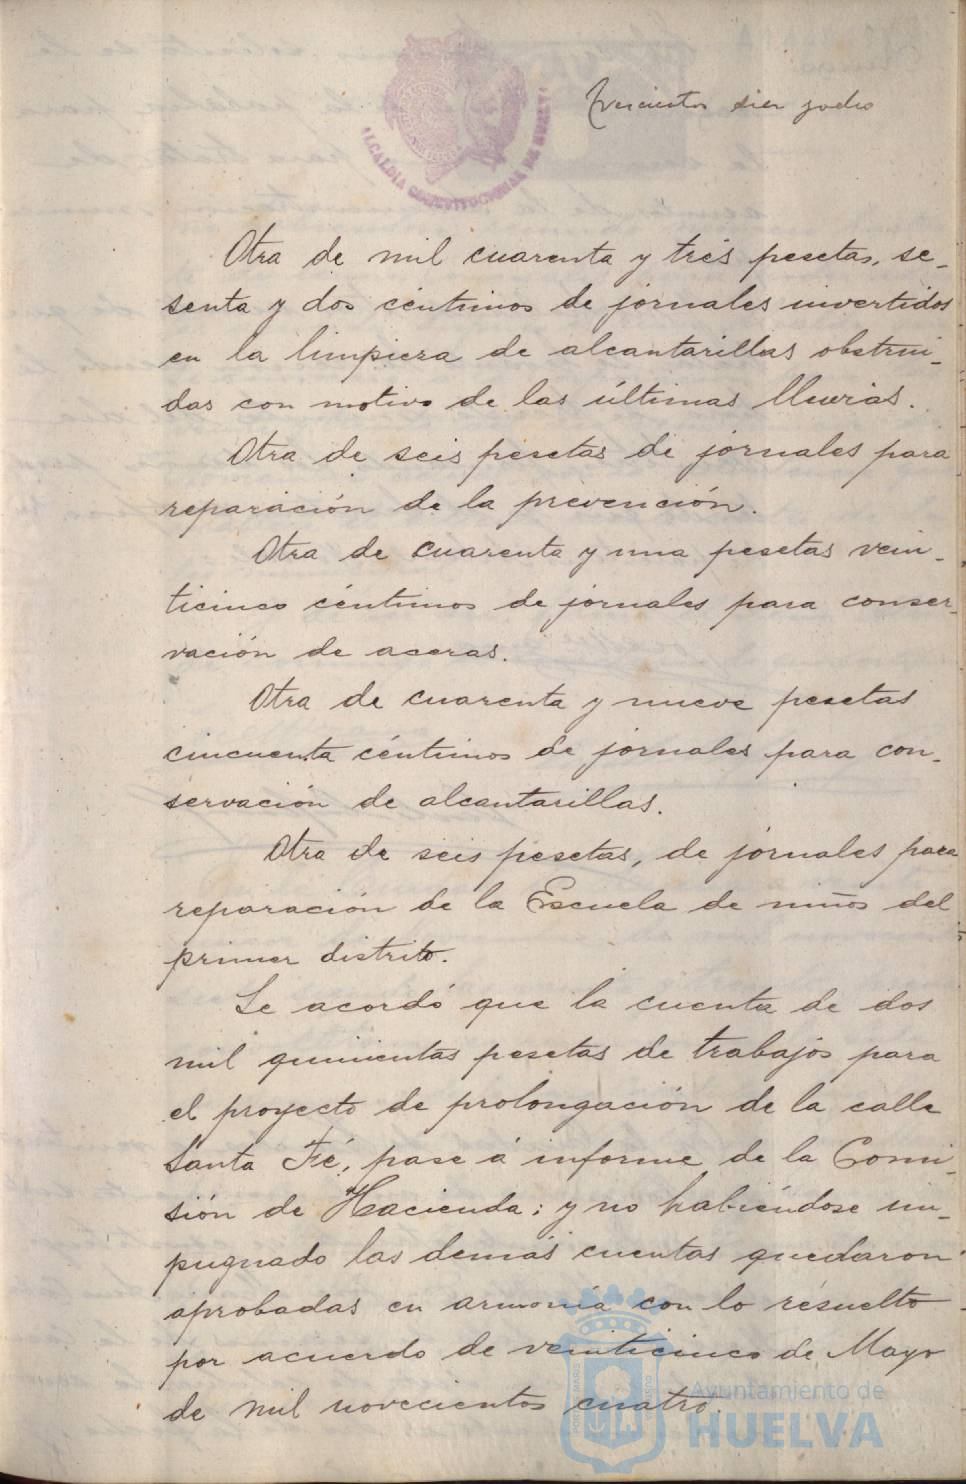 Trescientos diez y ocho
ALCALDIA CONSTITUCIONAL DE HUELVA
Otra de mil cuarenta y tres pesetas, se-
senta y dos céntimos de jornales invertidos
en la limpieza de alcantarillas obstrui-
das con motivo de las últimas lluvias.
Otra de seis pesetas de jornales para
reparación de la prevención.
Otra de cuarenta y una pesetas vein-
ticinco céntimos de jornales para conser-
vación de aceras.
Otra de cuarenta y nueve pesetas
cincuenta céntimos de jornales para con-
servación de alcantarillas.
Otra de seis pesetas, de jornales para
reparación de la Escuela de niños del
primer distrito.
Se acordó que la cuenta de dos
mil quinientas pesetas de trabajos para
el proyecto de prolongación de la calle
Santa Fé, pase á informe de la Comi-
sión de Hacienda; y no habiéndose im-
pugnado las demás cuentas quedaron
aprobadas en armonía con lo resuelto
por acuerdo de veinticinco de Mayo
de mil novecientos cuatro.
Ayuntamiento de
HUELVA